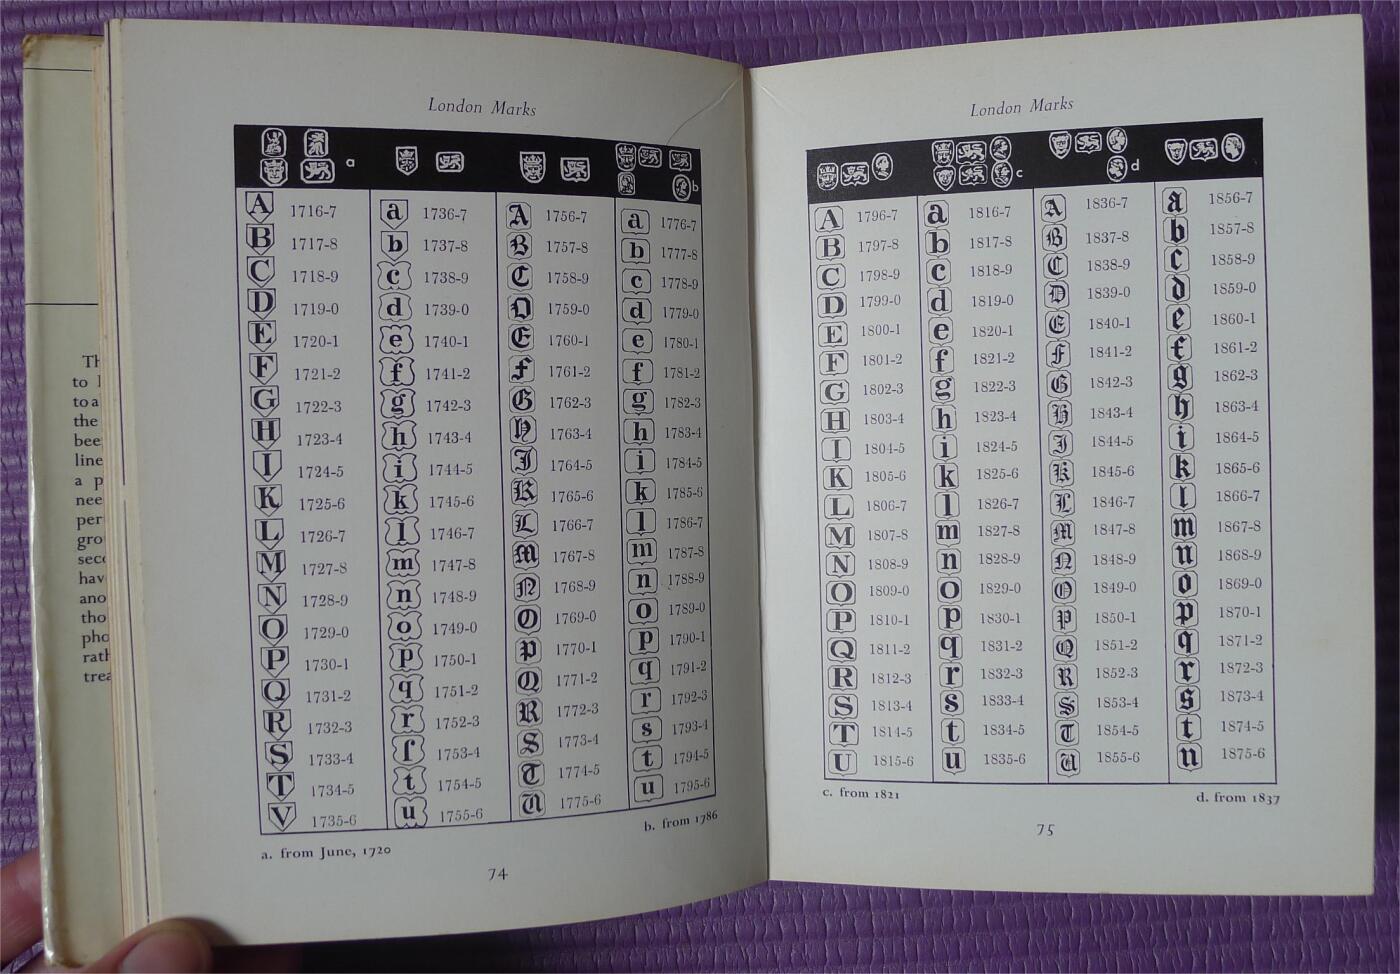 Th
to
to a
the
bee
line
a p
nee
per
gro
sec
hav
ano
tho
pho
rat
trea
London Marks
a b
A 1716-7 a 1736-7 A 1756-7 a 1776-7
B 1717-8 b 1737-8 B 1757-8 b 1777-8
C 1718-9 c 1738-9 C 1758-9 c 1778-9
D 1719-0 d 1739-0 D 1759-0 d 1779-0
E 1720-1 e 1740-1 E 1760-1 e 1780-1
F 1721-2 f 1741-2 F 1761-2 f 1781-2
G 1722-3 g 1742-3 G 1762-3 g 1782-3
H 1723-4 h 1743-4 H 1763-4 h 1783-4
I 1724-5 i 1744-5 I 1764-5 i 1784-5
K 1725-6 k 1745-6 K 1765-6 k 1785-6
L 1726-7 l 1746-7 L 1766-7 l 1786-7
M 1727-8 m 1747-8 M 1767-8 m 1787-8
N 1728-9 n 1748-9 N 1768-9 n 1788-9
O 1729-0 o 1749-0 O 1769-0 o 1789-0
P 1730-1 p 1750-1 P 1770-1 p 1790-1
Q 1731-2 q 1751-2 Q 1771-2 q 1791-2
R 1732-3 r 1752-3 R 1772-3 r 1792-3
S 1733-4 ſ 1753-4 S 1773-4 s 1793-4
T 1734-5 t 1754-5 T 1774-5 t 1794-5
V 1735-6 u 1755-6 U 1775-6 u 1795-6
a. from June, 1720 b. from 1786
74
London Marks
c d
A 1796-7 a 1816-7 A 1836-7 a 1856-7
B 1797-8 b 1817-8 B 1837-8 b 1857-8
C 1798-9 c 1818-9 C 1838-9 c 1858-9
D 1799-0 d 1819-0 D 1839-0 d 1859-0
E 1800-1 e 1820-1 E 1840-1 e 1860-1
F 1801-2 f 1821-2 F 1841-2 f 1861-2
G 1802-3 g 1822-3 G 1842-3 g 1862-3
H 1803-4 h 1823-4 H 1843-4 h 1863-4
I 1804-5 i 1824-5 I 1844-5 i 1864-5
K 1805-6 k 1825-6 K 1845-6 k 1865-6
L 1806-7 l 1826-7 L 1846-7 l 1866-7
M 1807-8 m 1827-8 M 1847-8 m 1867-8
N 1808-9 n 1828-9 N 1848-9 n 1868-9
O 1809-0 o 1829-0 O 1849-0 o 1869-0
P 1810-1 p 1830-1 P 1850-1 p 1870-1
Q 1811-2 q 1831-2 Q 1851-2 q 1871-2
R 1812-3 r 1832-3 R 1852-3 r 1872-3
S 1813-4 s 1833-4 S 1853-4 s 1873-4
T 1814-5 t 1834-5 T 1854-5 t 1874-5
U 1815-6 u 1835-6 U 1855-6 u 1875-6
c. from 1821 d. from 1837
75